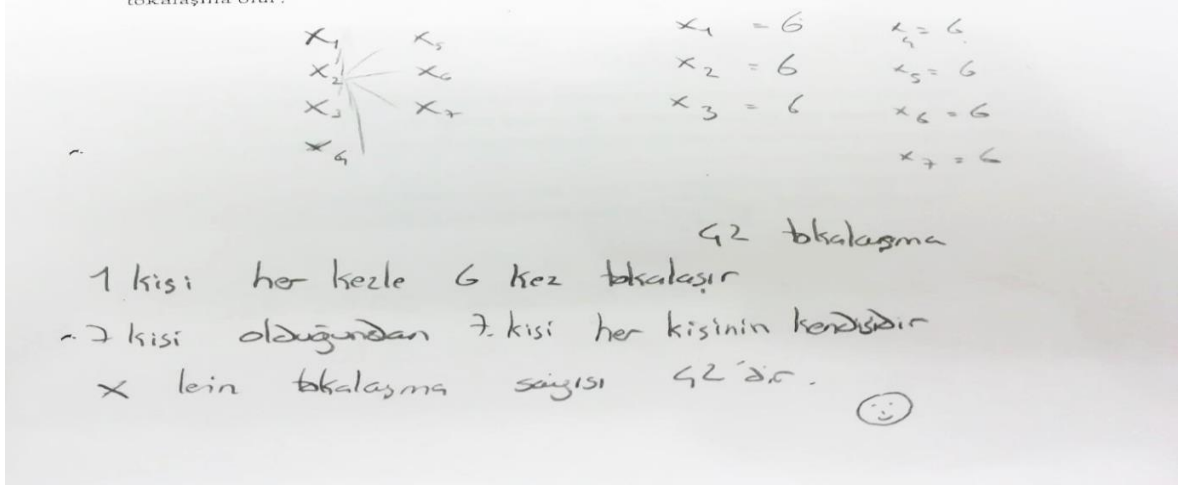 tokalaşma olur?
x₁ x₅
x₂ x₆
x₃ x₇
x₄
x₁ = 6 x₄ = 6
x₂ = 6 x₅ = 6
x₃ = 6 x₆ = 6
x₇ = 6
42 tokalaşma
1 kişi her kezle 6 kez tokalaşır
7 kişi olduğundan 7. kişi her kişinin kendisidir
x lein tokalaşma sayısı 42'dir.